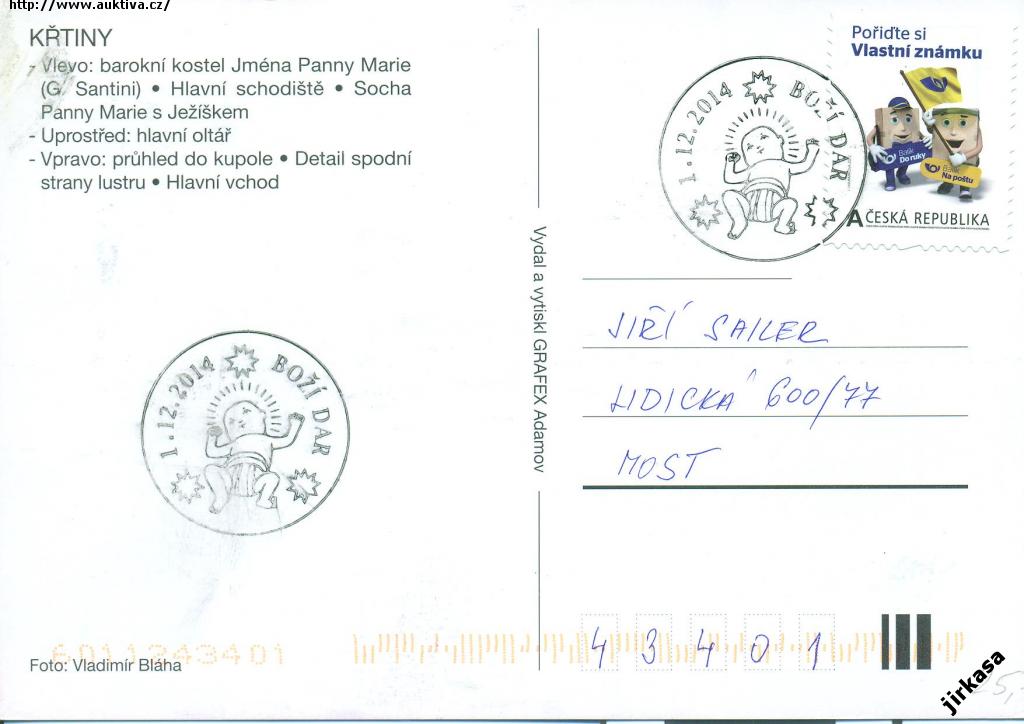 http://www.auktiva.cz/
KŘTINY
- Vlevo: barokní kostel Jména Panny Marie
(G. Santini) • Hlavní schodiště • Socha
Panny Marie s Ježíškem
- Uprostřed: hlavní oltář
- Vpravo: průhled do kupole • Detail spodní
strany lustru • Hlavní vchod
1.12.2014 BOŽÍ DAR
Foto: Vladimír Bláha
6011243401
Vydal a vytiskl GRAFEX Adamov
1.12.2014 BOŽÍ DAR
Pořiďte si
Vlastní známku
Balík
Do ruky
Balík
Na poštu
A ČESKÁ REPUBLIKA
JIŘÍ SAILER
LIDICKÁ 600/77
MOST
43401
jirkasa